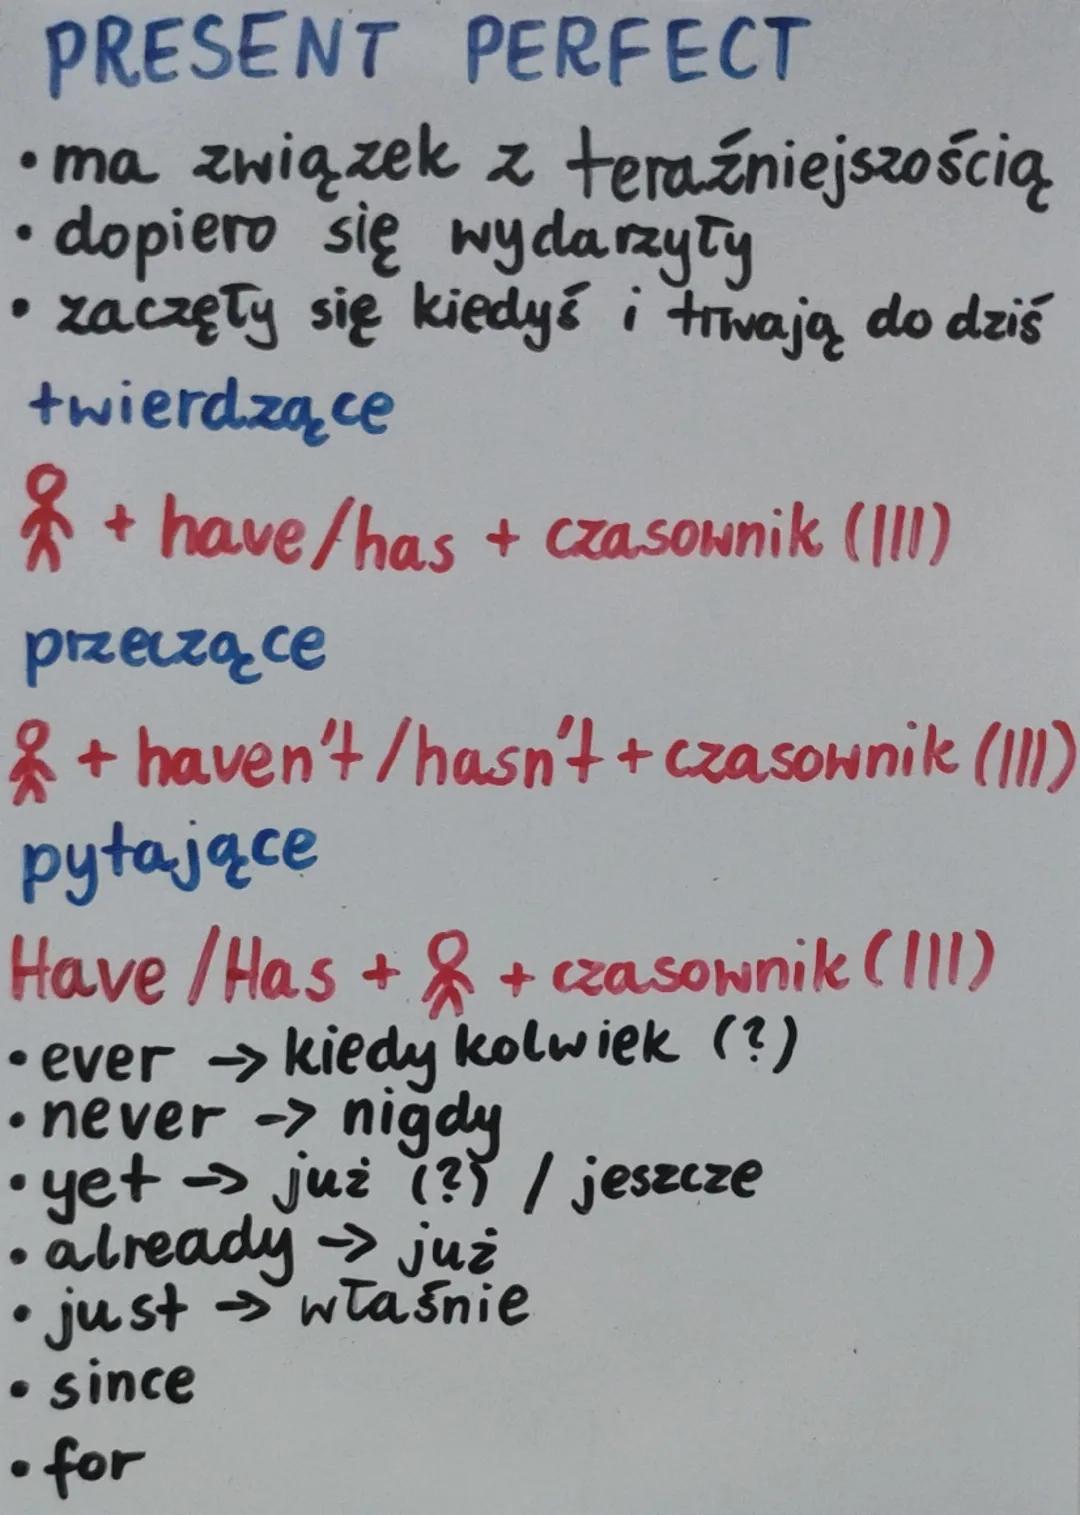 PRESENT PERFECT
• ma związek z teraźniejszością
• dopiero się wydarzyły
• zaczęły się kiedyś i trwają do dziś
twierdzące
+ have/has + czasownik (III)
przeczące
+ haven't/hasn't + czasownik (III)
pytające
Have/Has + + czasownik (III)
• ever → kiedykolwiek (?)
• never → nigdy
• yet → już (?) / jeszcze
• already → już
• just → właśnie
• since
• for